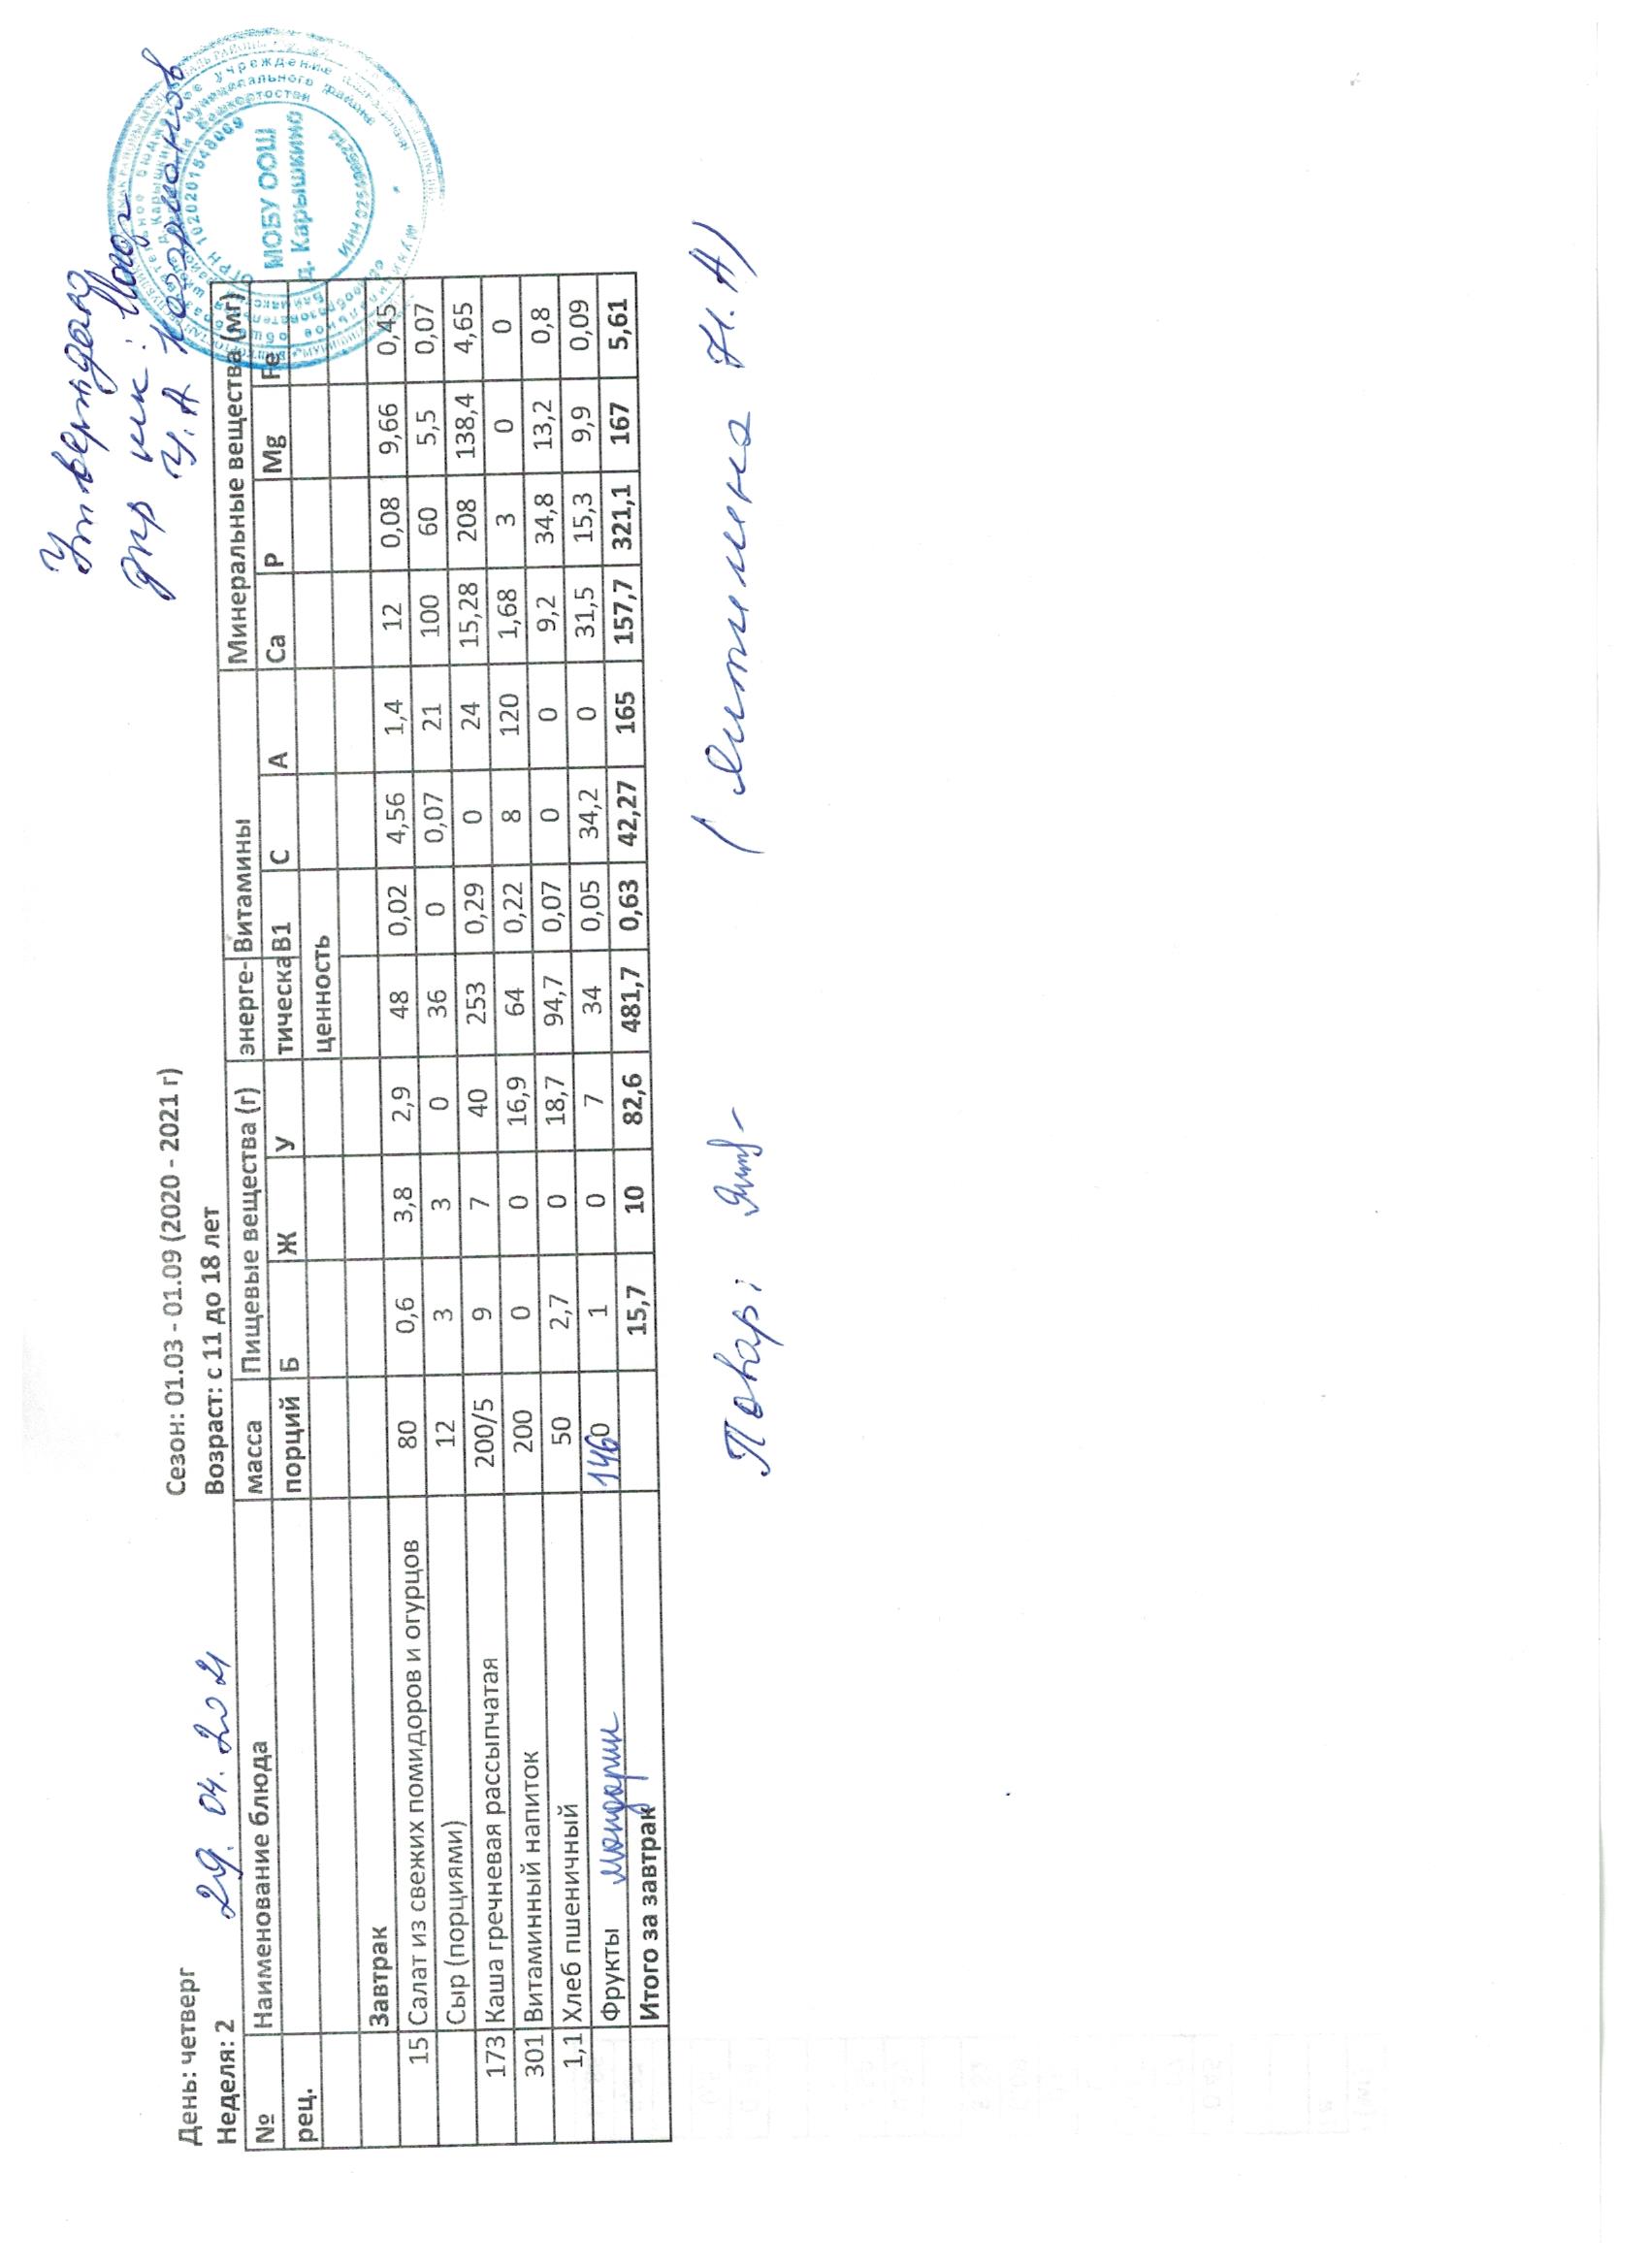 Утверждаю
дир шк:
День: четверг Сезон: 01.03 - 01.09 (2020 - 2021 г)
Неделя: 2 29.04.2021 Возраст: с 11 до 18 лет
№ Наименование блюда масса Пищевые вещества (г) энерге- Витамины Минеральные вещества (мг)
рец. порций Б Ж У тическа В1 С А Са Р Mg Fe
ценность
Завтрак
15 Салат из свежих помидоров и огурцов 80 0,6 3,8 2,9 48 0,02 4,56 1,4 12 0,08 9,66 0,45
Сыр (порциями) 12 3 3 0 36 0 0,07 21 100 60 5,5 0,07
173 Каша гречневая рассыпчатая 200/5 9 7 40 253 0,29 0 24 15,28 208 138,4 4,65
301 Витаминный напиток 200 0 0 16,9 64 0,22 8 120 1,68 3 0 0
1,1 Хлеб пшеничный 50 2,7 0 18,7 94,7 0,07 0 0 9,2 34,8 13,2 0,8
Фрукты мандарин 1460 1 0 7 34 0,05 34,2 0 31,5 15,3 9,9 0,09
Итого за завтрак 15,7 10 82,6 481,7 0,63 42,27 165 157,7 321,1 167 5,61
Повар:
МОБУ ООШ
д. Карышкино